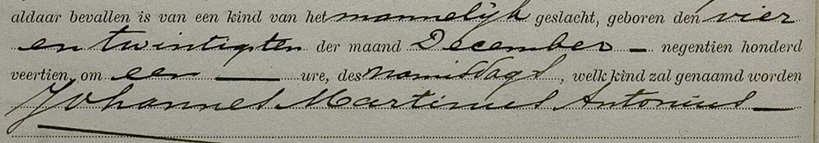 aldaar bevallen is van een kind van het mannelijk geslacht, geboren den vier
en twintigsten der maand December — negentien honderd
veertien, om een — ure, des namiddags, welk kind zal genaamd worden
Johannes Martinus Antonius —